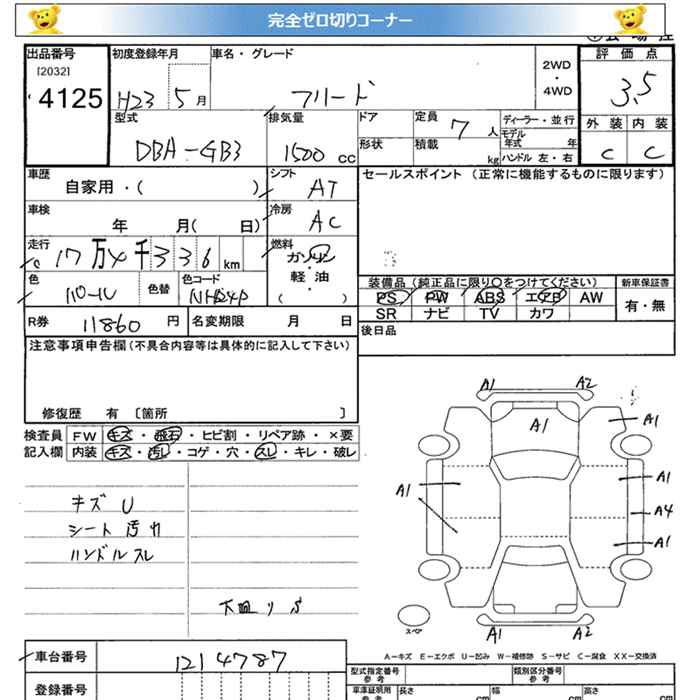 完全ゼロ切りコーナー
出品番号
[2032]
4125
初度登録年月
H23 5月
車名・グレード
フリード
2WD
・
4WD
評価点
3.5
外装 内装
C C
型式
DBA-GB3
排気量
1500 cc
ドア
形状
定員
7 人
積載
kg
ディーラー・並行
モデル年式 年
ハンドル 左・右
車歴
自家用・( )
シフト
AT
セールスポイント (正常に機能するものに限ります)
車検
年 月( 日)
冷房
AC
走行
17万4千336km
燃料
ガソリン
軽・油
( )
色
パール
色替
色コード
NH624P
装備品(純正品に限り○をつけてください)
PS PW ABS エアB AW
SR ナビ TV カワ
新車保証書
有・無
R券 11860 円
名変期限 月 日
後日品
注意事項申告欄(不具合内容等は具体的に記入して下さい)
修復歴 有 [箇所 ]
検査員 FW キズ・飛石・ヒビ割・リペア跡・×要
記入欄 内装 キズ・汚し・コゲ・穴・スレ・キレ・破レ
キズ U
シート汚れ
ハンドルスレ
下廻りS
A1 A2
A1
A1
A1
A1
A4
A1
A1 A2
スペア
A-キズ E-エクボ U-凹み W-補修跡 S-サビ C-腐食 XX-交換済
車台番号 1214787
登録番号
型式指定番号
参考
類別区分番号
参考
車庫証明用
参考
長さ cm 幅 cm 高さ cm